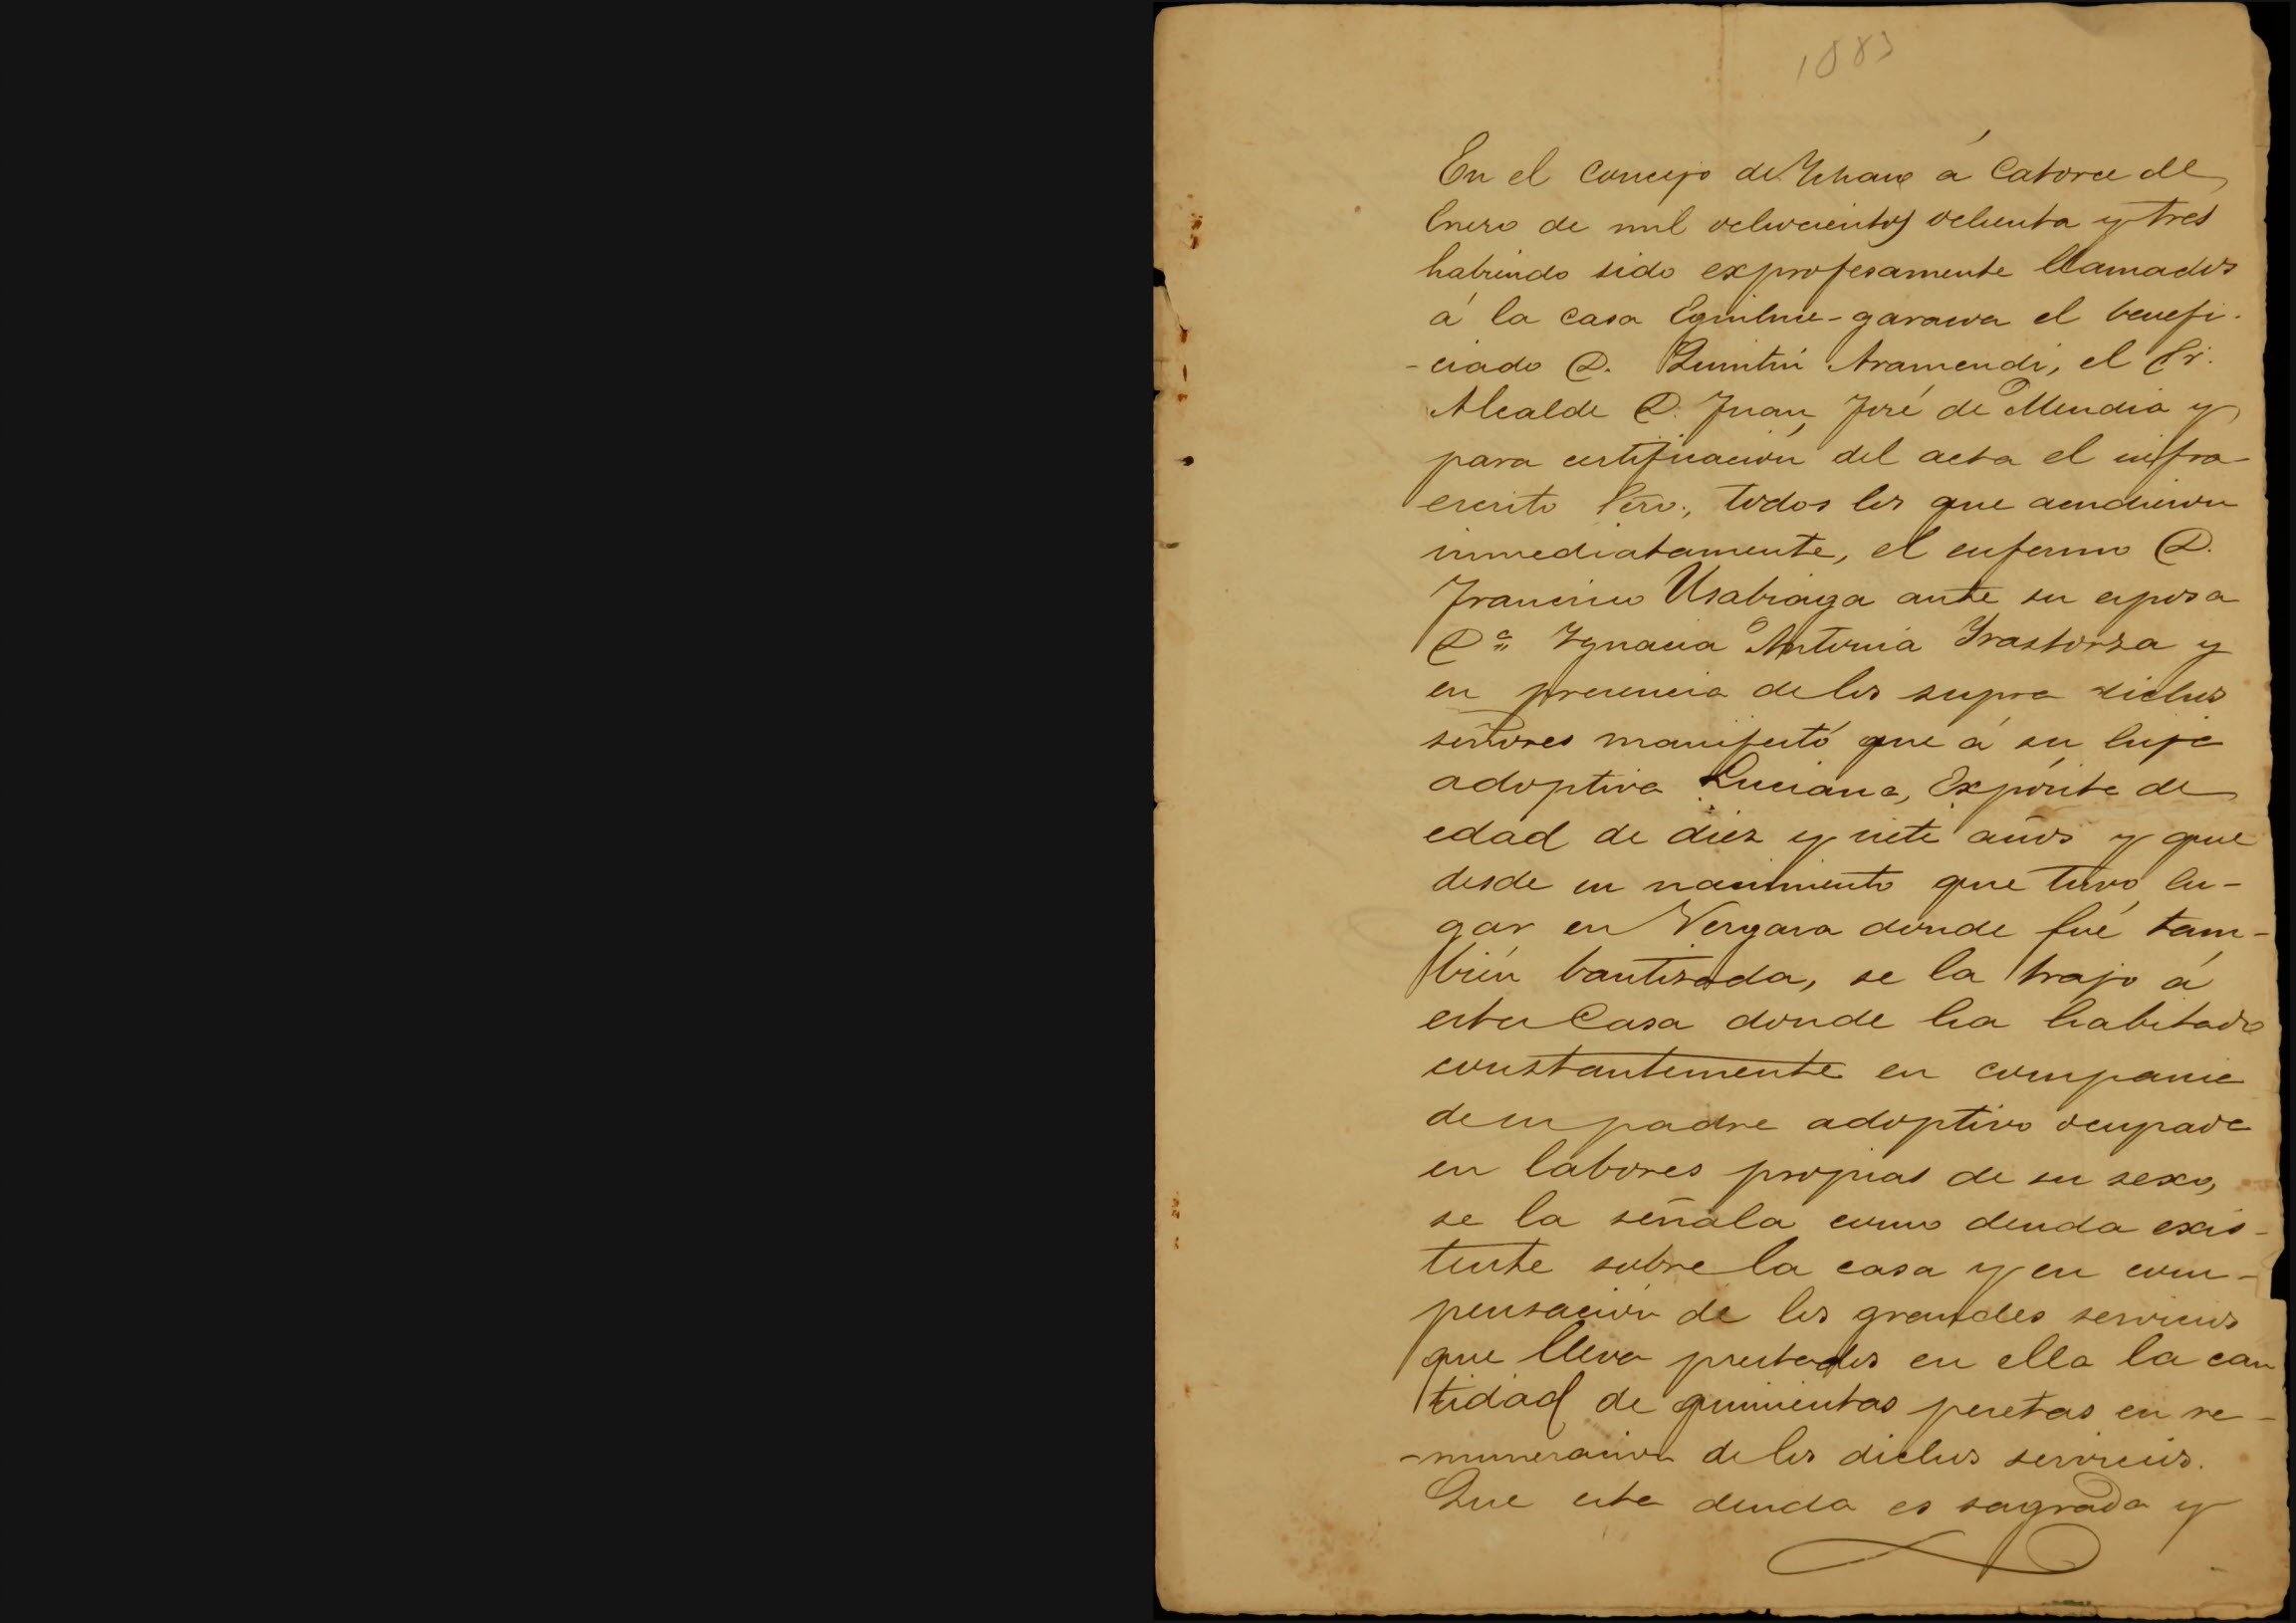 1883
En el Concejo de Ichaso á Catorce de
Enero de mil ochocientos ochenta y tres
habiendo sido exprofesamente llamados
á la casa garacoa el benefi-
-ciado D. Quintin Aramendi, el Sr.
Alcalde D. Juan José de Mendia y
para certificación del acta el infra-
escrito Srio., todos los que acudieron
inmediatamente, el enfermo D.
Francisco Usabiaga ante su esposa
Dª Ygnacia Antonia Yrastorza y
en presencia de los supra dichos
señores manifestó que á su hija
adoptiva Luciana, Expósita de
edad de diez y siete años y que
desde su nacimiento que tuvo lu-
gar en Vergara donde fué tam-
bién bautizada, se la trajo á
esta Casa donde ha habitado
constantemente en compania
de su padre adoptivo ocupada
en labores propias de su sexo,
se la señala como deuda exis-
tente sobre la casa y en com-
pensación de los grandes servicios
que lleva prestados en ella la can
tidad de quinientas pesetas en re-
-muneracion de los dichos servicios.
Que esta deuda es sagrada y